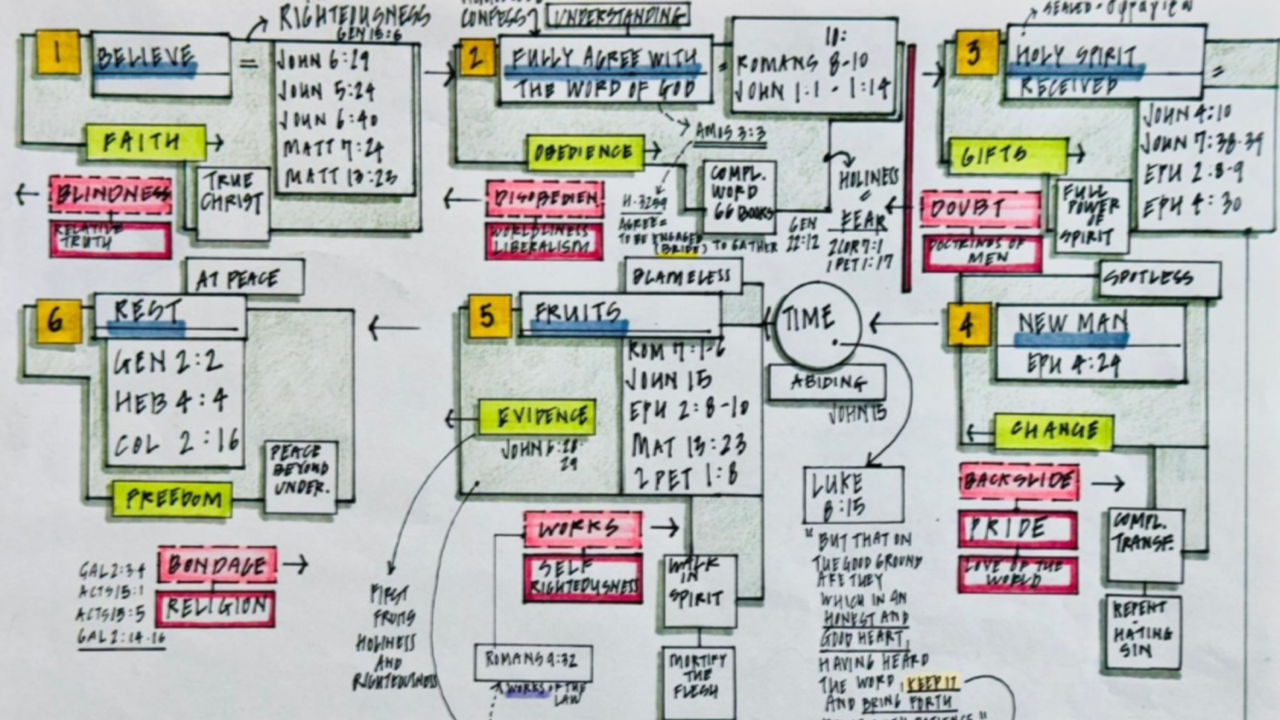 RIGHTEOUSNESS
GEN 15:6
1
BELIEVE
=
JOHN 6:29
JOHN 5:24
JOHN 6:40
MATT 7:24
MATT 13:23
FAITH
BLINDNESS
RELATIVE
TRUTH
TRUE
CHRIST
CONFESS
UNDERSTANDING
2
FULLY AGREE WITH
THE WORD OF GOD
=
10:
ROMANS 8-10
JOHN 1:1 - 1:14
AMOS 3:3
OBEDIENCE
DISOBEDIEN
WORLDLINESS
LIBERALISM
H-3259
AGREE =
TO BE ENGAGED
(BRIDE) TO GATHER
COMPL.
WORD
66 BOOKS
GEN
22:12
HOLINESS
=
FEAR
2 COR 7:1
1 PET 1:17
3
HOLY SPIRIT
RECEIVED
=
JOHN 4:10
JOHN 7:38-39
EPH 2:8-9
EPH 4:30
GIFTS
DOUBT
DOCTRINES OF
MEN
FULL
POWER
OF
SPIRIT
SPOTLESS
4
NEW MAN
EPH 4:24
CHANGE
BACKSLIDE
PRIDE
LOVE OF THE
WORLD
COMPL.
TRANSF.
REPENT
-
HATING
SIN
TIME
ABIDING
JOHN 15
LUKE
8:15
"BUT THAT ON
THE GOOD GROUND
ARE THEY
WHICH IN AN
HONEST AND
GOOD HEART,
HAVING HEARD
THE WORD, KEEP IT
AND BRING FORTH
BLAMELESS
5
FRUITS
ROM 7:1-6
JOHN 15
EPH 2:8-10
MAT 13:23
2 PET 1:8
EVIDENCE
JOHN 6:28-
29
WORKS
SELF
RIGHTEOUSNESS
WALK
IN
SPIRIT
MORTIFY
THE
FLESH
ROMANS 9:32
WORKS OF THE
LAW
FIRST
FRUITS
HOLINESS
AND
RIGHTEOUSNESS
AT PEACE
6
REST
GEN 2:2
HEB 4:4
COL 2:16
FREEDOM
PEACE
BEYOND
UNDER.
BONDAGE
RELIGION
GAL 2:34
ACTS 15:1
ACTS 15:5
GAL 2:14-16